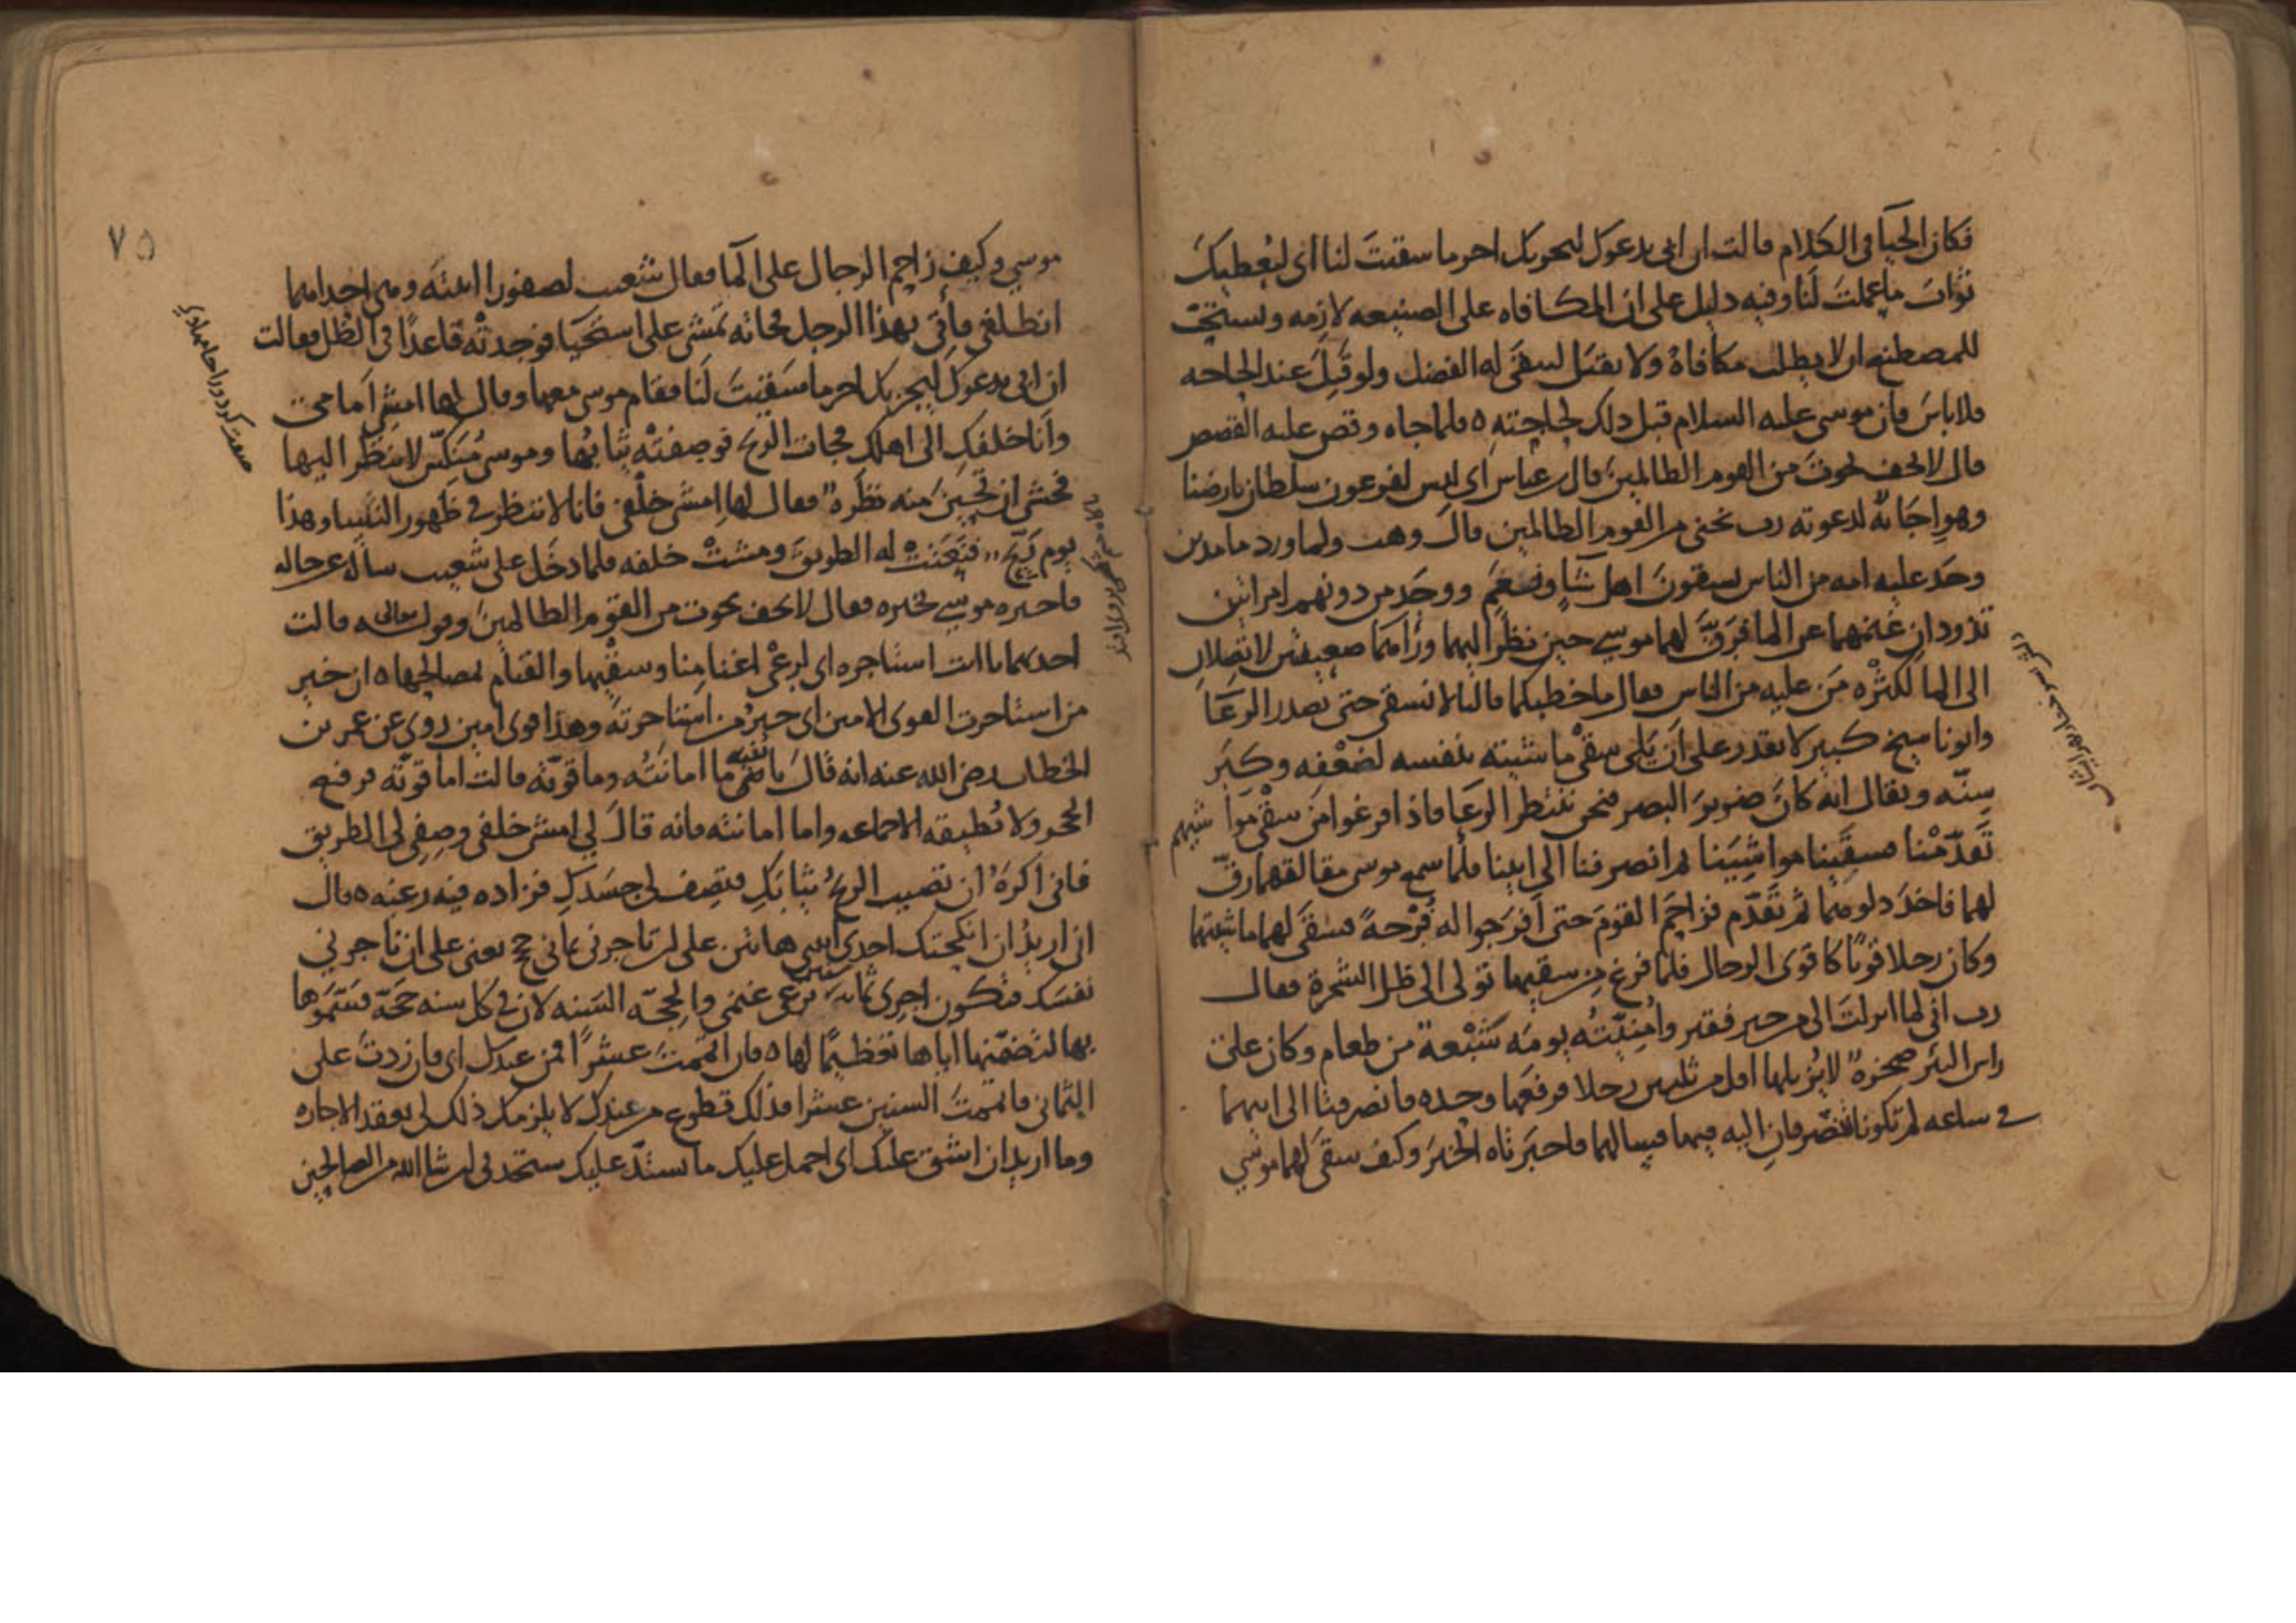 فكان الحيا في الكلام قالت ان ابي يدعوك ليجزيك اجر ما سقيت لنا اي ليعطيك
ثواب ما عملت لنا وفيه دليل على ان المكافاه على الصنيعه لازمه ويستحب
للمصطنع ان لا يطلب مكافاة ولا يقبل ليبقى له الفضل ولو قبل عند الحاجه
فلا باس فان موسى عليه السلام قبل ذلك لحاجته ه فلما جاه وقص عليه القصص
قال لا تخف نجوت من القوم الظالمين قال ابن عباس اي ليس لفرعون سلطان بارضنا
وهو اجابة لدعوته رب نجني من القوم الظالمين قال وهب ولما ورد ما مدين
وجد عليه امه من الناس يسقون اهل شاء ونعم ووجد من دونهم امراتين
تذودان غنمهما عن الما فرق لهما موسى حين نظر اليهما ورآهما ضعيفتين لا تصلان
الى الما لكثره من عليه من الناس فقال ما خطبكما قالتا لا نسقي حتى يصدر الرعا
وابونا شيخ كبير لا يقدر على ان يلي سقي ماشيته بنفسه لضعفه وكبر
سنه ويقال انه كان ضرير البصر فنحن ننتظر الرعا فاذا فرغوا من سقي مواشيهم
تقدمنا فسقينا مواشينا ثم انصرفنا الى ابينا فلما سمع موسى مقالتهما رق
لهما فاخذ دلوهما ثم تقدم فزاحم القوم حتى افرجوا له فرجة فسقى لهما ماشيتهما
وكان رجلا قويا كاقوى الرجال فلما فرغ من سقيهما تولى الى ظل الشجرة فقال
رب اني لما انزلت الي من خير فقير وامنيته يومه شبعة من طعام وكان على
راس البئر صخرة لا يزيلها اقل من ثلثين رجلا فرفعها وحده فانصرفتا الى ابيهما
في ساعه لم تكونا تنصرفان اليه فيها فسالهما فاخبرتاه الخبر وكيف سقى لهما موسى
موسى وكيف زاحم الرجال على الما فقال شعيب لصفورا ابنته وهي احداهما
انطلقي فأتي بهذا الرجل فجاته تمشي على استحيا فوجدته قاعدا في الظل فقالت
ان ابي يدعوك ليجزيك اجر ما سقيت لنا فقام موسى معها وقال لها امشي امامي
وانا خلفك الى اهلك فجات الريح فوصفته ثيابها وموسى منكس لا ينظر اليها
فخشي ان تحين منه نظرة فقال لها امشي خلفي فانا لا ننظر في ظهور النسا وهذا
يوم ريح فنعتت له الطريق ومشت خلفه فلما دخل على شعيب ساله عن حاله
فاخبره موسى بخبره فقال لا تخف نجوت من القوم الظالمين وقوله تعالى قالت
احديهما يا ابت استاجره اي لرعي اغنامنا وسقيها والقيام بمصالحها ه ان خير
من استاجرت القوي الامين اي خير من استاجرته وهذا قوي امين روي عن عمر بن
الخطاب رضي الله عنه انه قال يا بنيه ما امانته وما قوته قالت اما قوته فرفع
الحجر ولا تطيقه الا جماعه واما امانته فانه قال لي امشي خلفي وصفي لي الطريق
فاني اكره ان تصيب الريح ثيابك فتصف لي جسدك فزاده فيه رغبه ه قال
اني اريد ان انكحك احدى ابنتي هاتين على ان تاجرني ثماني حجج يعني على ان تاجرني
نفسك فتكون اجري ثمان سنين ترعى غنمي والحجه السنه لان في كل سنه حجة فسموها
بها لتضمنها اياها تعظيما لها ه فان اتممت عشرا فمن عندك اي فان زدت على
الثماني فاتممت السنين عشرا فذلك تطوع من عندك لا يلزمك ذلك لي بعقد الاجاره
وما اريد ان اشق عليك اي احمل عليك ما يشتد عليك ستجدني ان شا الله من الصالحين
٧٥